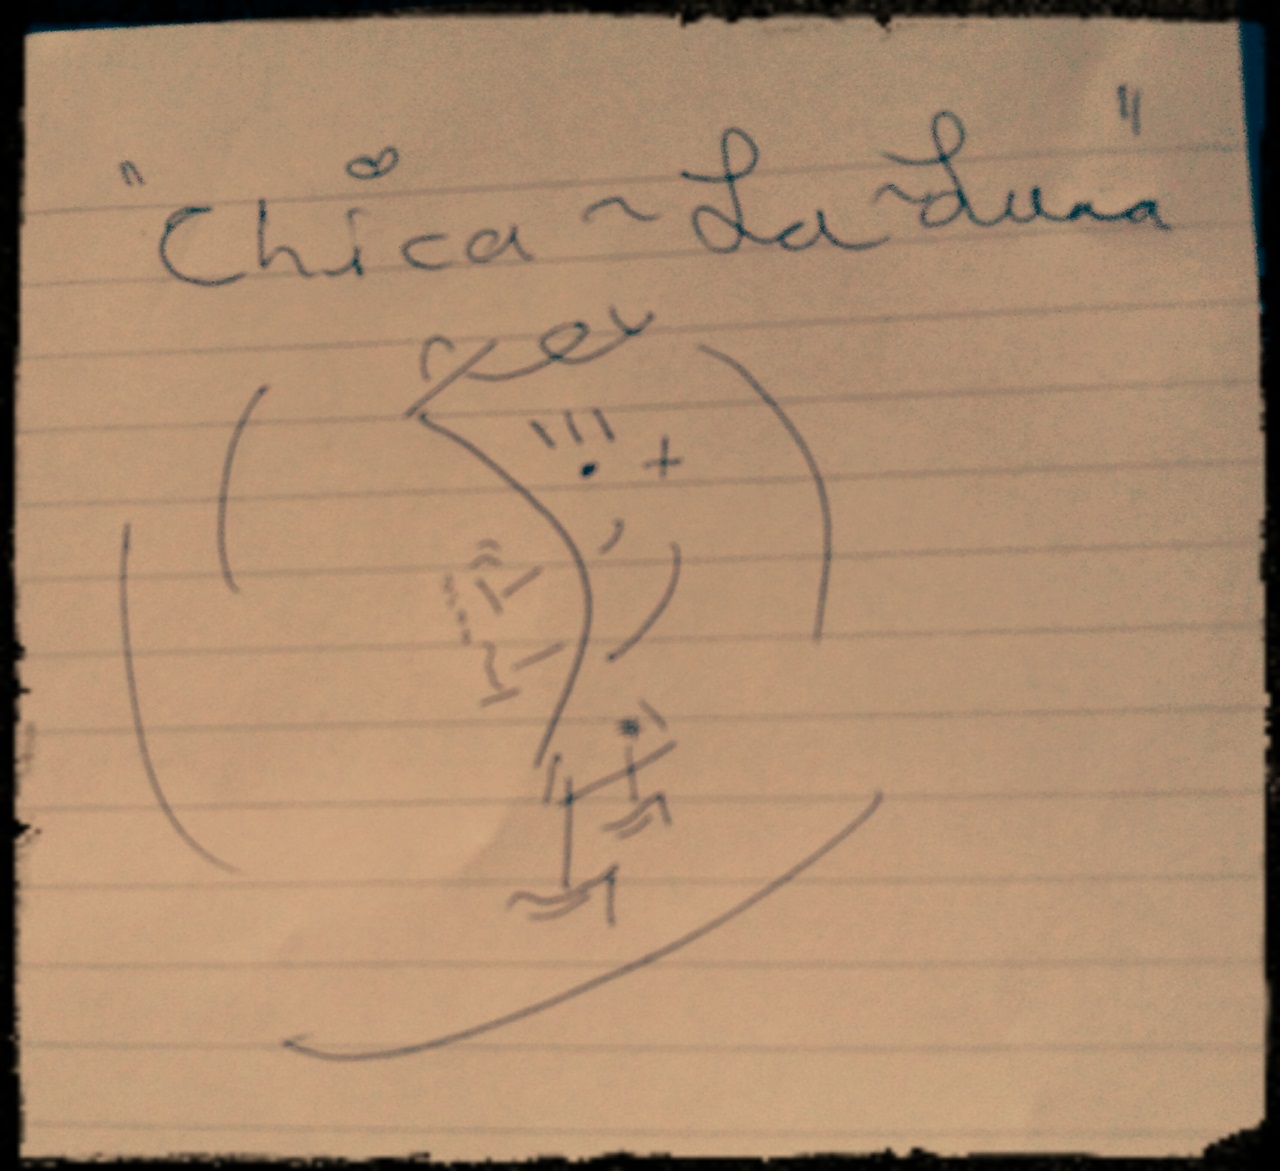 "Chica ~ La ~ Luna"